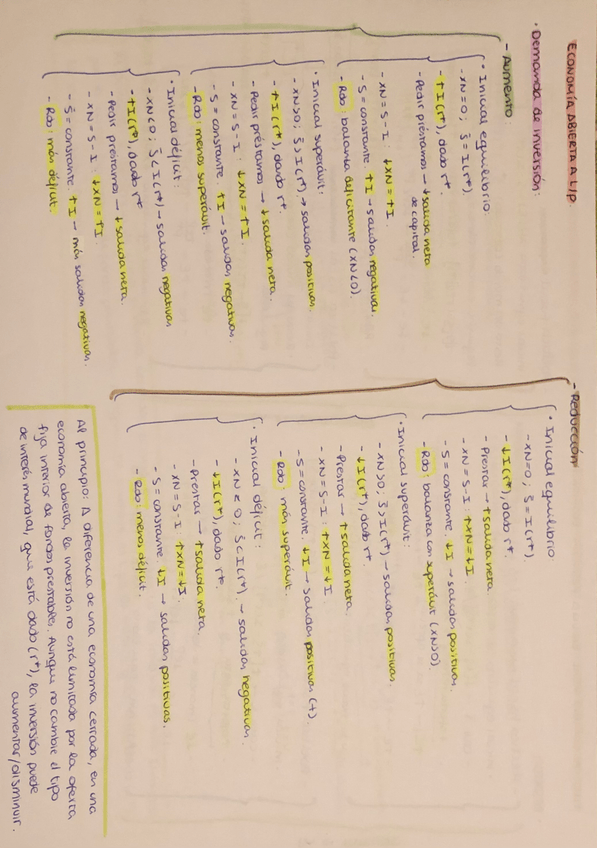 ECONOMÍA ABIERTA A L/P
· Demanda de inversión:
- Aumento:
· Inicial equilibrio
- XN=0; S̄=I(r*).
- ↑I(r*), dado r*.
- Pedir préstamos → ↓salida neta
de capital.
- XN=S-I: ↓XN=↑I.
- S̄=constante ↑I → salidas negativas.
- Rdo: balanza deficitaria (XN<0).
· Inicial superávit:
- XN>0; S̄>I(r*) → salidas positivas.
- ↑I(r*), dado r*.
- Pedir préstamos → ↓salida neta.
- XN=S-I: ↓XN=↑I.
- S̄=constante ↑I → salidas negativas.
- Rdo: menos superávit.
· Inicial déficit:
- XN<0; S̄<I(r*) → salidas negativas
- ↑I(r*), dado r*.
- Pedir préstamos → ↓salida neta.
- XN=S-I: ↓XN=↑I
- S̄=constante ↑I → más salidas negativas.
- Rdo: más déficit.
- Reducción
· Inicial equilibrio
- XN=0; S̄=I(r*).
- ↓I(r*), dado r*.
- Prestar → ↑salida neta.
- XN=S-I: ↑XN=↓I.
- S=constante ↓I → salidas positivas.
- Rdo: balanza con superávit (XN>0).
· Inicial superávit:
- XN>0; S̄>I(r*) → salidas positivas.
- ↓I(r*), dado r*
- Prestar → ↑salida neta.
- XN=S-I: ↑XN=↓I
- S=constante ↓I → salidas positivas (+)
- Rdo: más superávit.
· Inicial déficit:
- XN<0; S̄<I(r*) → salidas negativas
- ↓I(r*), dado r*.
- Prestar → ↑salida neta.
- XN=S-I: ↑XN=↓I.
- S=constante ↓I → salidas positivas.
- Rdo: menos déficit.
Al principio: A diferencia de una economía cerrada, en una
economía abierta, la inversión no está limitada por la oferta
fija interior de fondos prestables. Aunque no cambie el tipo
de interés mundial, que está dado (r*), la inversión puede
aumentar/disminuir.